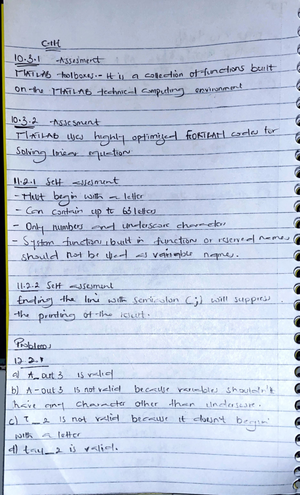 10.3.1 - Assesment
MATLAB toolboxes :- It is a collection of functions built
on the MATLAB technical computing environment
10.3.2 - Assesment
MATLAB uses highly optimized FORTRAN codes for
Solving linear equation
11.2.1 Self assesment
- Must begin with a letter
- Can contain up to 63 letters
- Only numbers and underscore character
- System function, built in function or reserved names
should not be used as variable names.
11.2.2 Self assesment
Ending the line with semicolon (;) will suppress
the printing of the result.
Problem
12.2.1
a) A_out3 is valid
b) A-out3 is not valid because variables shouldn't
have any character other than underscore.
c) T_2 is not valid because it doesn't begin
with a letter
d) _2 is valid.